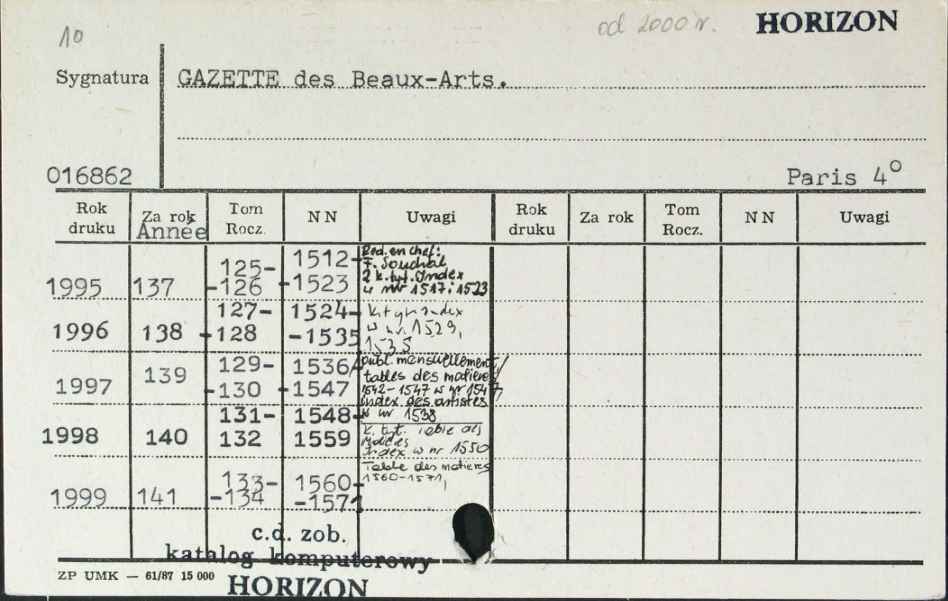 10
od 2000 r.
HORIZON
Sygnatura
GAZETTE des Beaux-Arts.
016862
Paris 4°
Rok druku | Za rok Année | Tom Rocz. | NN | Uwagi | Rok druku | Za rok | Tom Rocz. | NN | Uwagi
1995 | 137 | 125-
-126 | 1512-
-1523 | Red. en chef:
F. Souchal
2 k. tyt. Index
w nr 1517 i 1523
1996 | 138 | 127-
-128 | 1524-
-1535 | K. tyt. Index
w nr 1529,
1535
1997 | 139 | 129-
-130 | 1536/
1547 | publ. mensuellement/
tables des matières
1542-1547 w nr 1547
index des artistes
w nr 1538
1998 | 140 | 131-
132 | 1548-
1559 | K. tyt. Table des
Index w nr 1550
1999 | 141 | 133-
-134 | 1560-
-1571 | Table des matières
1560-1571,
c.d. zob.
katalog komputerowy
HORIZON
ZP UMK — 61/87 15 000